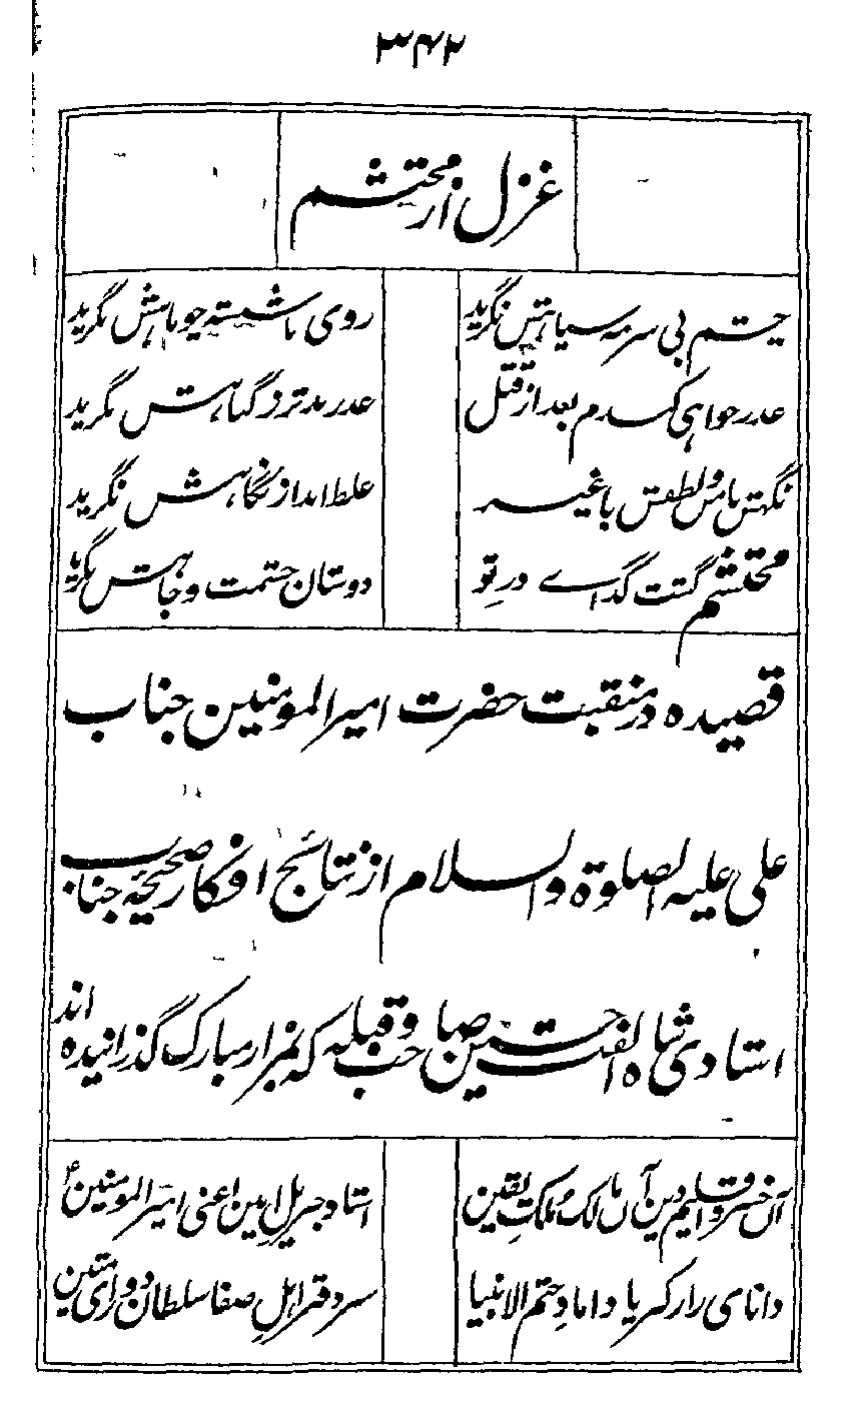 ۳۴۲
غزل از محتشم
چشم بی سرمه سیاهش نگرید روی ناشسته چو ماهش نگرید
عذر خواهی کندم بعد از قتل عذر بدتر ز گناهش نگرید
نگهش با من و لطفش با غیر غلط انداز نگاهش نگرید
محتشم گشت گدای در تو دوستان حشمت و جاهش نگرید
قصیده در منقبت حضرت امیرالمومنین جناب
علی علیه الصلوة والسلام از نتائج افکار صحیحهٔ جناب
استادی شاه الفت حسین صاحب و قبله که بمزار مبارک گذرانیده اند
آن خسرو اقلیم دین آن مالک ملکت یقین استاد جبریل امین اعنی امیرالمومنین ع
دانای راز کبریا داماد ختم الانبیا سر دفتر اهل صفا سلطان دو رای متین